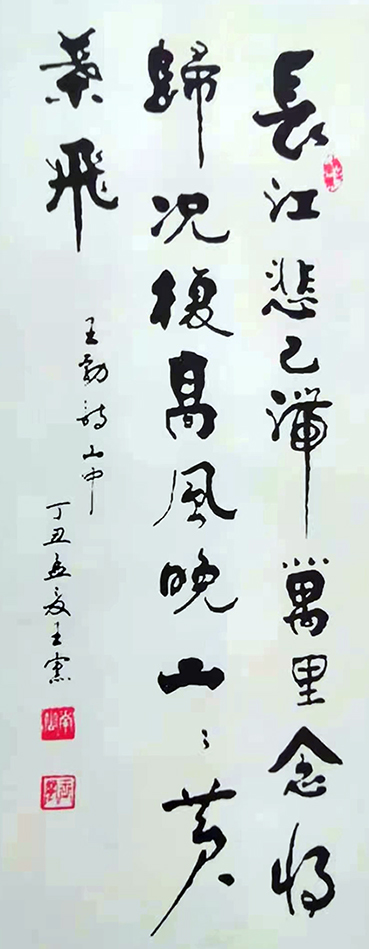 長江悲已滯萬里念將
歸况復高風晚山〻黄
葉飛
王勃詩山中
丁丑孟夏王憲